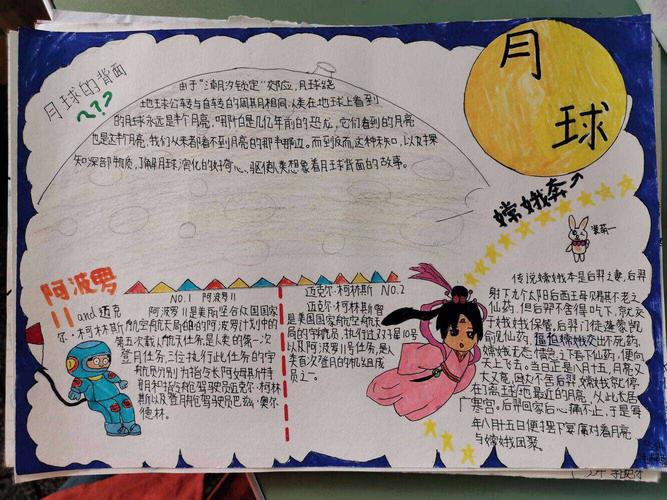 月
球
月球的背面
???
由于"潮汐锁定"效应，月球绕
地球公转与自转的周期相同，人类在地球上看到
的月球永远是半个月亮，哪怕是几亿年前的恐龙，它们看到的月亮
也是这半个月亮，我们从来都看不到月亮的那半那边。而到反而，这种未知，以及探
知深部物质，了解月球演化的好奇心，驱使人类想象着月球背面的故事。
嫦娥奔→
装萌一
阿波罗
11 and 迈克
尔·柯林斯
NO.1 阿波罗11
阿波罗11是美丽坚合众国国家
航空航天局的的阿波罗计划中的
第五次载人航天任务，是人类的一次
登月任务，三位执行此任务的宇
航员分别为指令长阿姆斯特
朗和指令舱驾驶员迈克尔·柯林
斯以及登月舱驾驶员巴兹·奥尔
德林。
迈克尔·柯林斯 NO.2
迈克尔·柯林斯曾
是美国国家航空航天局
的宇航员，执行过双子星10号
以及阿波罗11号任务，是人
类首次登月的机组成
员之一。
传说嫦娥本是后羿之妻，后羿
射下九个太阳后西王母赐其不老之
仙药，但后羿不舍得吃下，就交
于嫦娥保管，后羿门徒蓬蒙觊
觎仙药，逼迫嫦娥交出不死药，
嫦娥无态情急之下吞下仙药，便向
天上飞去。当日正是八月十五，月亮又
大又亮，因大不舍后羿，嫦娥就停
在了离球地最近的月亮，从此长居
广寒宫。后羿回家后心痛不止，于是每
年八月十五日便摆下宴席对着月亮
与嫦娥团聚。